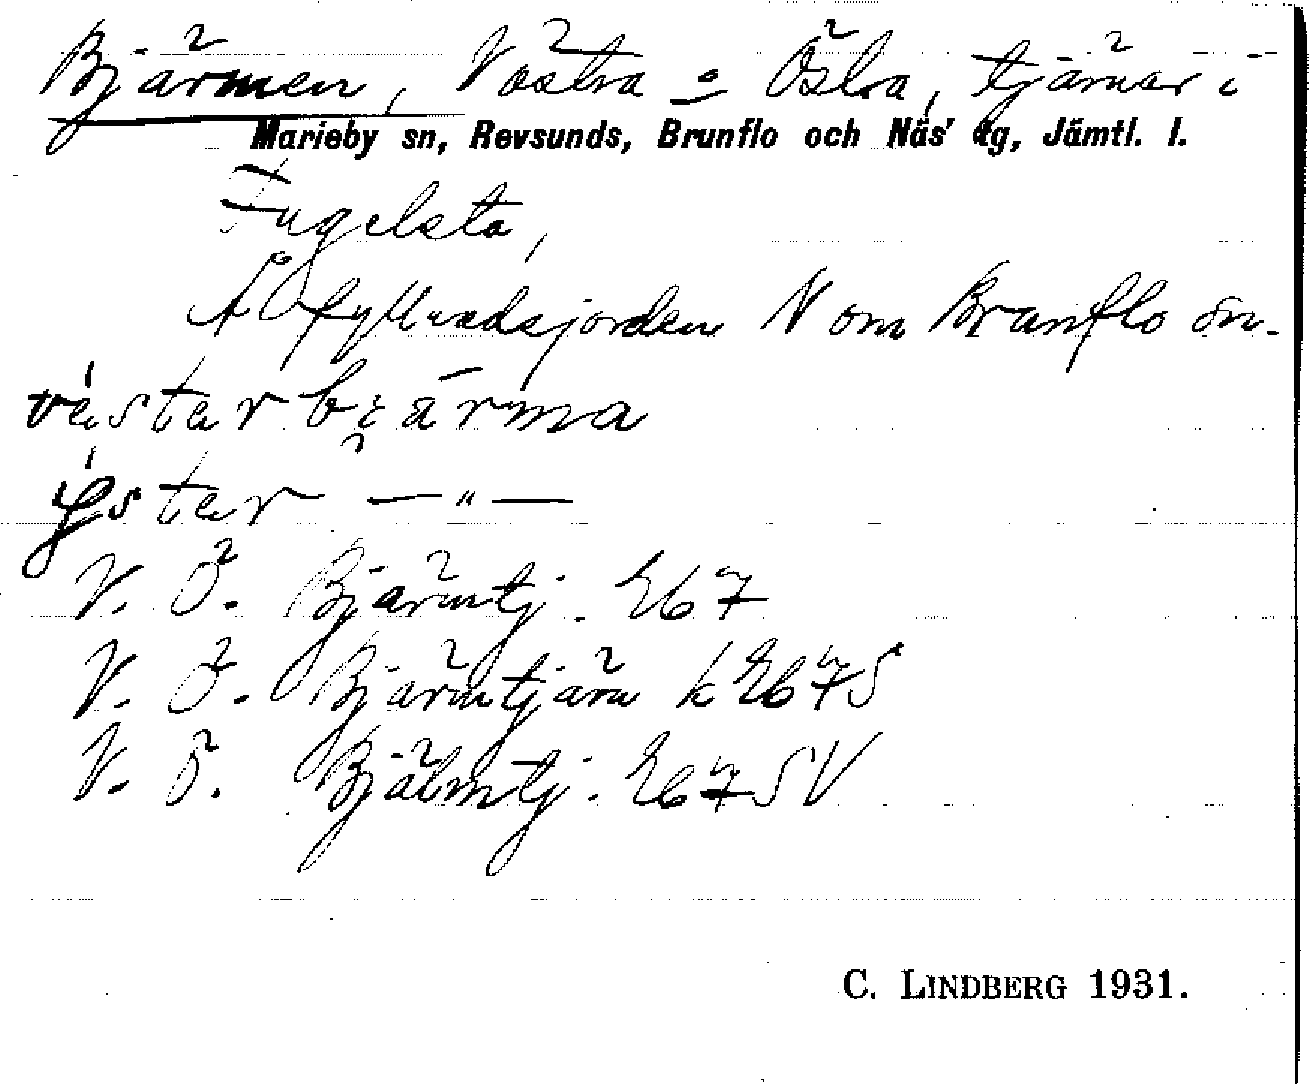 Bjärmen, Västra o Östra, tjärnar i
Marieby sn, Revsunds, Brunflo och Näs' tg, Jämtl. l.
Fugelsta,
Å fyllnadsjorden V om Brunflo sn.
véstarbjärma
ǿstar —"—
V. Ö. Bjärmtj. E67
V. Ö. Bjärmtjärn k E67S
V. Ö. Bjälmtj. E67SV
C. LINDBERG 1931.